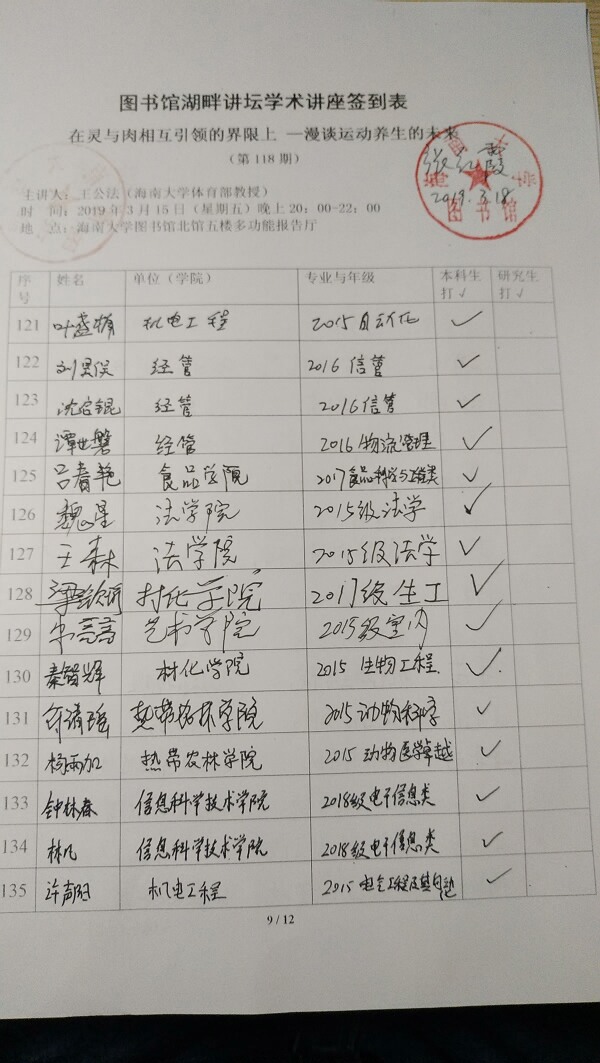 图书馆湖畔讲坛学术讲座签到表
在灵与肉相互引领的界限上 —漫谈运动养生的未来
（第 118 期）
张红霞
2019.3.18
图书馆
主讲人：王公法（海南大学体育部教授）
时 间：2019 年 3 月 15 日（星期五）晚上 20：00-22：00
地 点：海南大学图书馆北馆五楼多功能报告厅
序号 姓名 单位（学院） 专业与年级 本科生打√ 研究生打√
121 叶盛楠 机电工程 2015自动化 ✓
122 经管 2016 信管 ✓
123 沈启锟 经管 2016信管 ✓
124 谭世磐 经管 2016 物流管理 ✓
125 吕春艳 食品学院 2017食品科学与工程类 ✓
126 魏星 法学院 2015级法学 ✓
127 王森 法学院 2015级法学 ✓
128 材化学院 2017级生工 ✓
129 艺术学院 2015级室内 ✓
130 秦智辉 材化学院 2015 生物工程. ✓
131 热带农林学院 2015动物科学 ✓
132 杨雨加 热带农林学院 2015 动物医学卓越 ✓
133 钟林春 信息科学技术学院 2018级电子信息类 ✓
134 林凡 信息科学技术学院 2018级电子信息类 ✓
135 许声阳 机电工程 2015 电气工程及其自动化 ✓
9 / 12